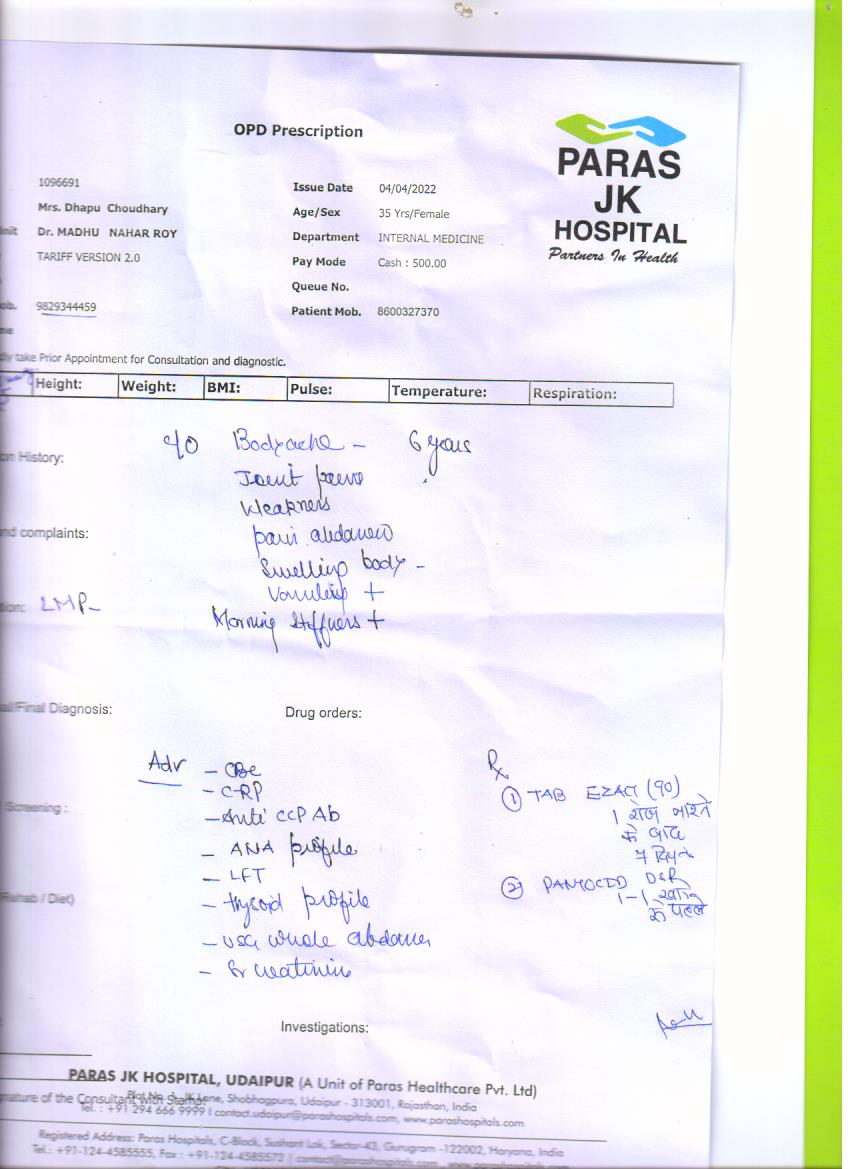 OPD Prescription
PARAS
JK
HOSPITAL
Partners In Health
1096691
Mrs. Dhapu Choudhary
Dr. MADHU NAHAR ROY
TARIFF VERSION 2.0
9829344459
Issue Date 04/04/2022
Age/Sex 35 Yrs/Female
Department INTERNAL MEDICINE
Pay Mode Cash : 500.00
Queue No.
Patient Mob. 8600327370
take Prior Appointment for Consultation and diagnostic.
Height: Weight: BMI: Pulse: Temperature: Respiration:
c/o Bodyache - 6 years
History:
Joint
Weakness
complaints:
Swelling body -
LMP-
Morning Stiffness +
/Final Diagnosis:
Drug orders:
Adv - CBC
- CRP
- Anti CCP Ab
- ANA profile
- LFT
- thyroid profile
- USG whole abdomen
- Sr creatinine
Screening :
/ Diet)
Rx
① TAB (90)
1 रोज नाश्ते
के बाद
② DSR
1-1
के पहले
Investigations:
PARAS JK HOSPITAL, UDAIPUR (A Unit of Paras Healthcare Pvt. Ltd)
of the Consultant with Stamp: Shobhagpura, Udaipur - 313001, Rajasthan, India
Tel. : +91 294 666 9999 I contact.udaipur@parashospitals.com, www.parashospitals.com
Registered Address: Paras Hospitals, C-Block, Sushant Lok, Sector-43, Gurugram -122002, Haryana, India
Tel.: +91-124-4585555, Fax : +91-124-4585572 | contact@parashospitals.com